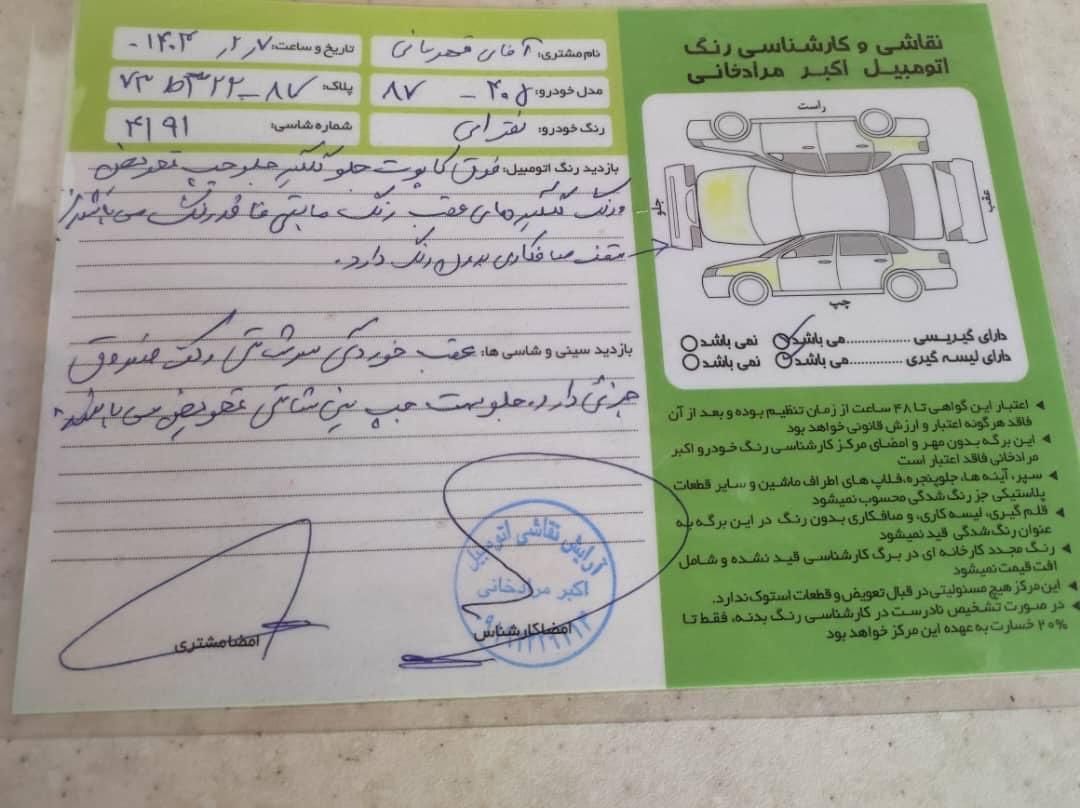 نقاشی و کارشناسی رنگ
اتومبیل اکبر مرادخانی
نام مشتری: آقای قهرمانی
تاریخ و ساعت: ۱۴۰۳
مدل خودرو: ۸۷ - ۴۰۵
پلاک:
رنگ خودرو: نقره ای
شماره شاسی: ۴۱۹۱
بازدید رنگ اتومبیل: فوق کاپوت جلو گلگیر جلو چپ تعویض
و رنگ گلگیرهای عقب رنگ مابقی فاقد رنگ می باشد
سقف صافکاری بدون رنگ دارد.
بازدید سینی و شاسی ها: عقب خوردگی سرشاسی راست صندوق
جزئی دارد، جلو سمت چپ سینی شاسی تعویض می باشد
امضا کارشناس
امضا مشتری
آرایش نقاشی اتومبیل
اکبر مرادخانی
راست
جلو
عقب
چپ
دارای گیریسی ................می باشد نمی باشد
دارای لیسه گیری ............می باشد نمی باشد
اعتبار این گواهی تا ۴۸ ساعت از زمان تنظیم بوده و بعد از آن
فاقد هرگونه اعتبار و ارزش قانونی خواهد بود
این برگه بدون مهر و امضای مرکز کارشناسی رنگ خودرو اکبر
مرادخانی فاقد اعتبار است
سپر، آینه ها، جلوپنجره، فلاپ های اطراف ماشین و سایر قطعات
پلاستیکی جز رنگ شدگی محسوب نمیشود
قلم گیری، لیسه کاری، و صافکاری بدون رنگ در این برگه به
عنوان رنگ شدگی قید نمیشود
رنگ مجدد کارخانه ای در برگ کارشناسی قید نشده و شامل
افت قیمت نمیشود
این مرکز هیچ مسئولیتی در قبال تعویض و قطعات استوک ندارد.
در صورت تشخیص نادرست در کارشناسی رنگ بدنه، فقط تا
۲۰% خسارت به عهده این مرکز خواهد بود